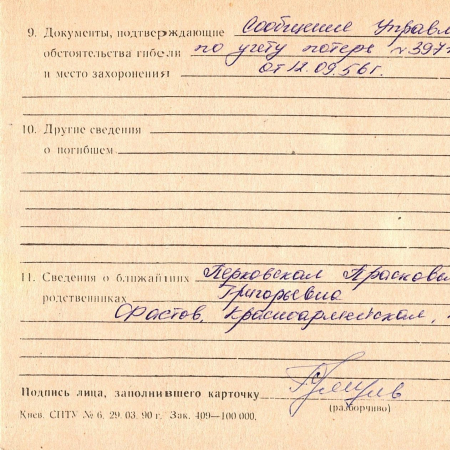 9. Документы, подтверждающие Сообщение Управл
обстоятельства гибели по учету потерь № 397
и место захоронения от 12.09.56г.
10. Другие сведения
о погибшем
11. Сведения о ближайших Перковская Прасковь
родственниках Григорьевна
Фастов, Красноармейская,
Подпись лица, заполнившего карточку
(разборчиво)
Киев. СПТУ № 6. 29. 03. 90 г. Зак. 409—100 000.